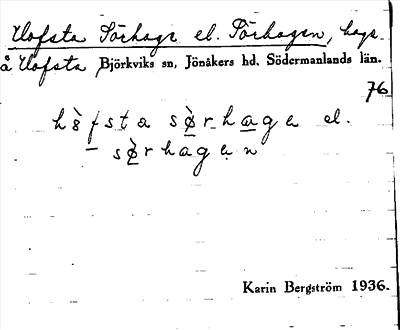 Hofsta Sörhage el. Sörhagen, hage
å Hofsta, Björkviks sn, Jönåkers hd, Södermanlands län.
76
hòfsta sø̀rhage el.
– sø̀rhagen
Karin Bergström 1936.